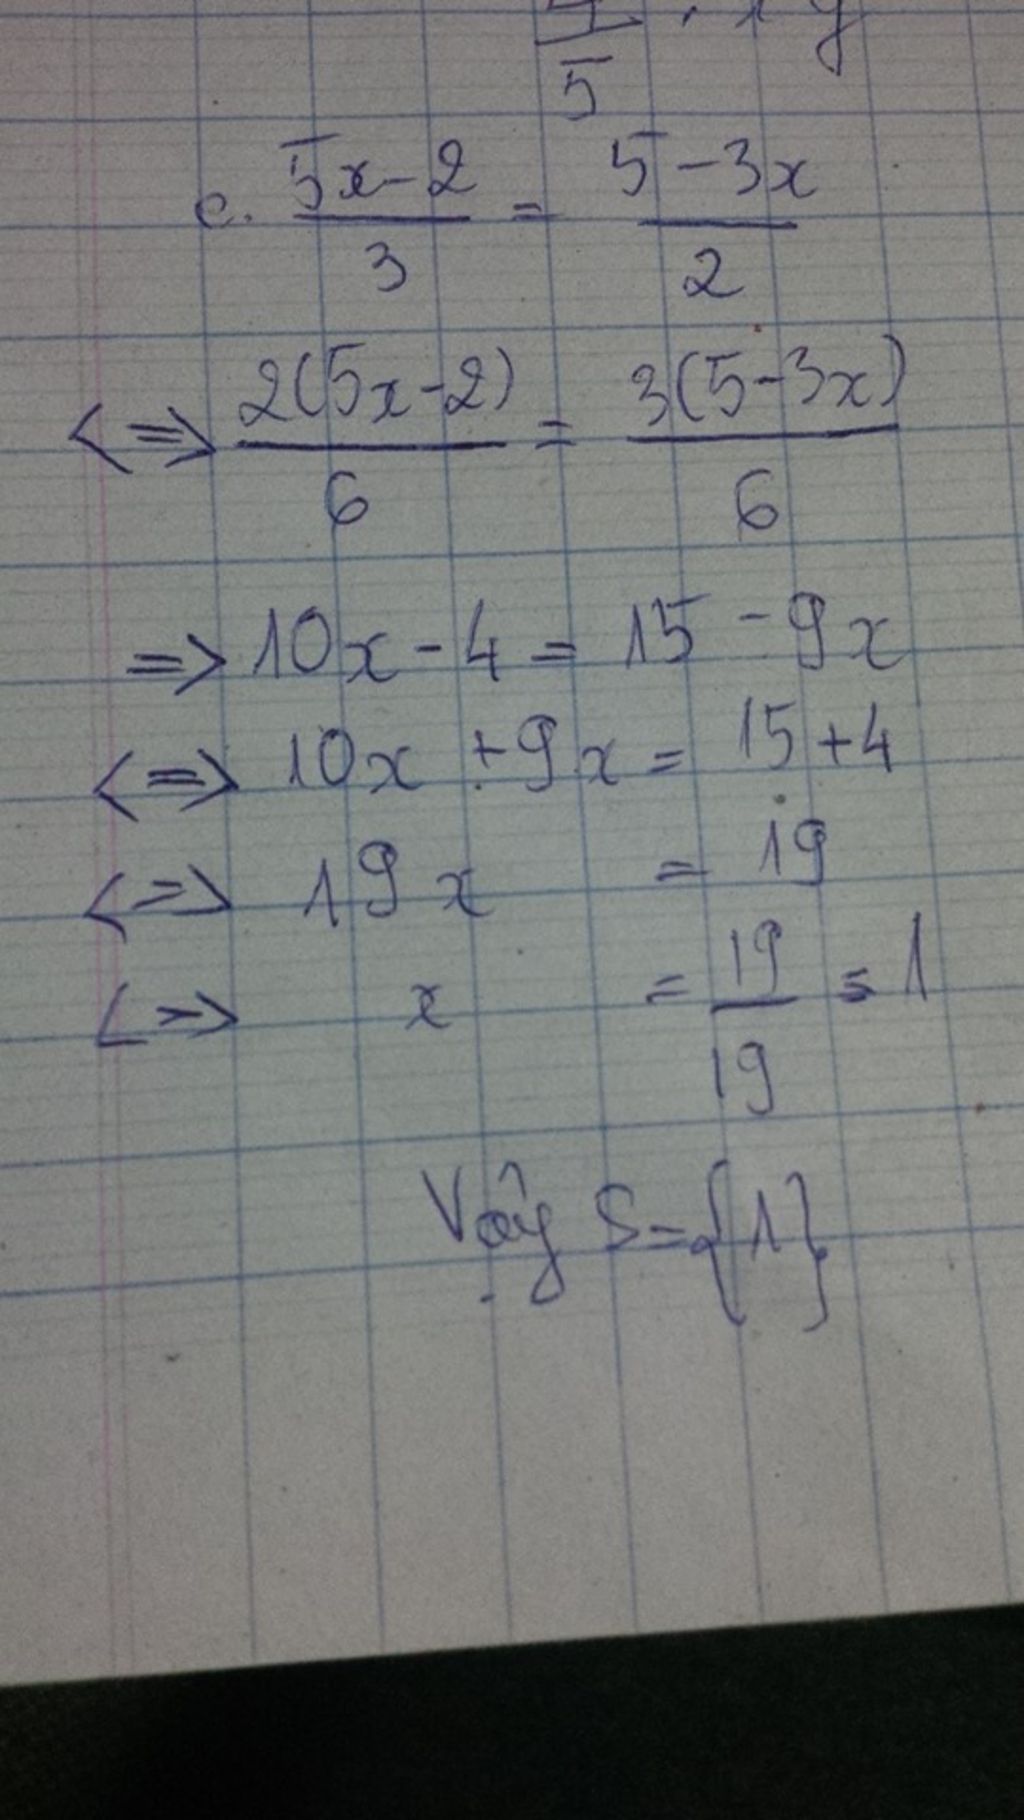 5
c. (5x-2)/3 = (5-3x)/2
<=> 2(5x-2)/6 = 3(5-3x)/6
=> 10x - 4 = 15 - 9x
<=> 10x + 9x = 15 + 4
<=> 19x = 19
<=> x = 19/19 = 1
Vậy S = {1}